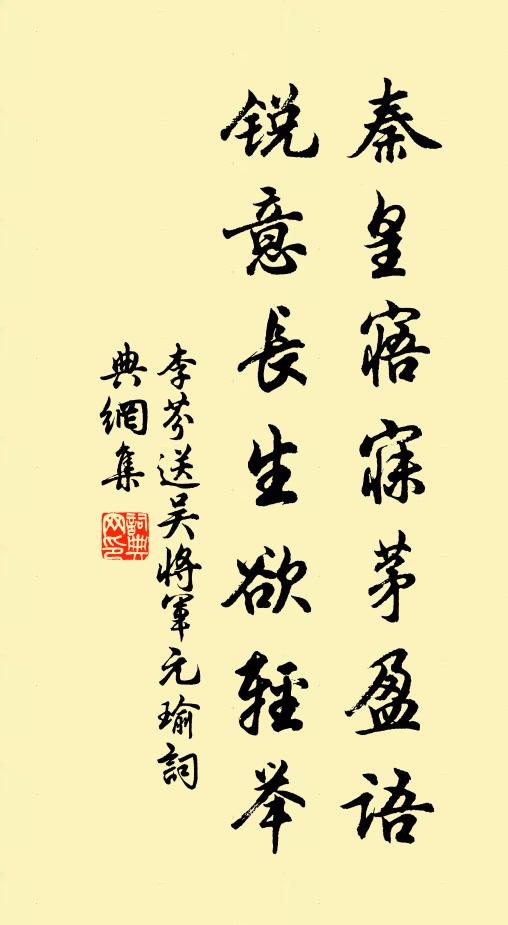 秦皇寤寐茅盈語
銳意長生欲輕举
李芬送吴將軍元瑜詞
典網集
詞典网印